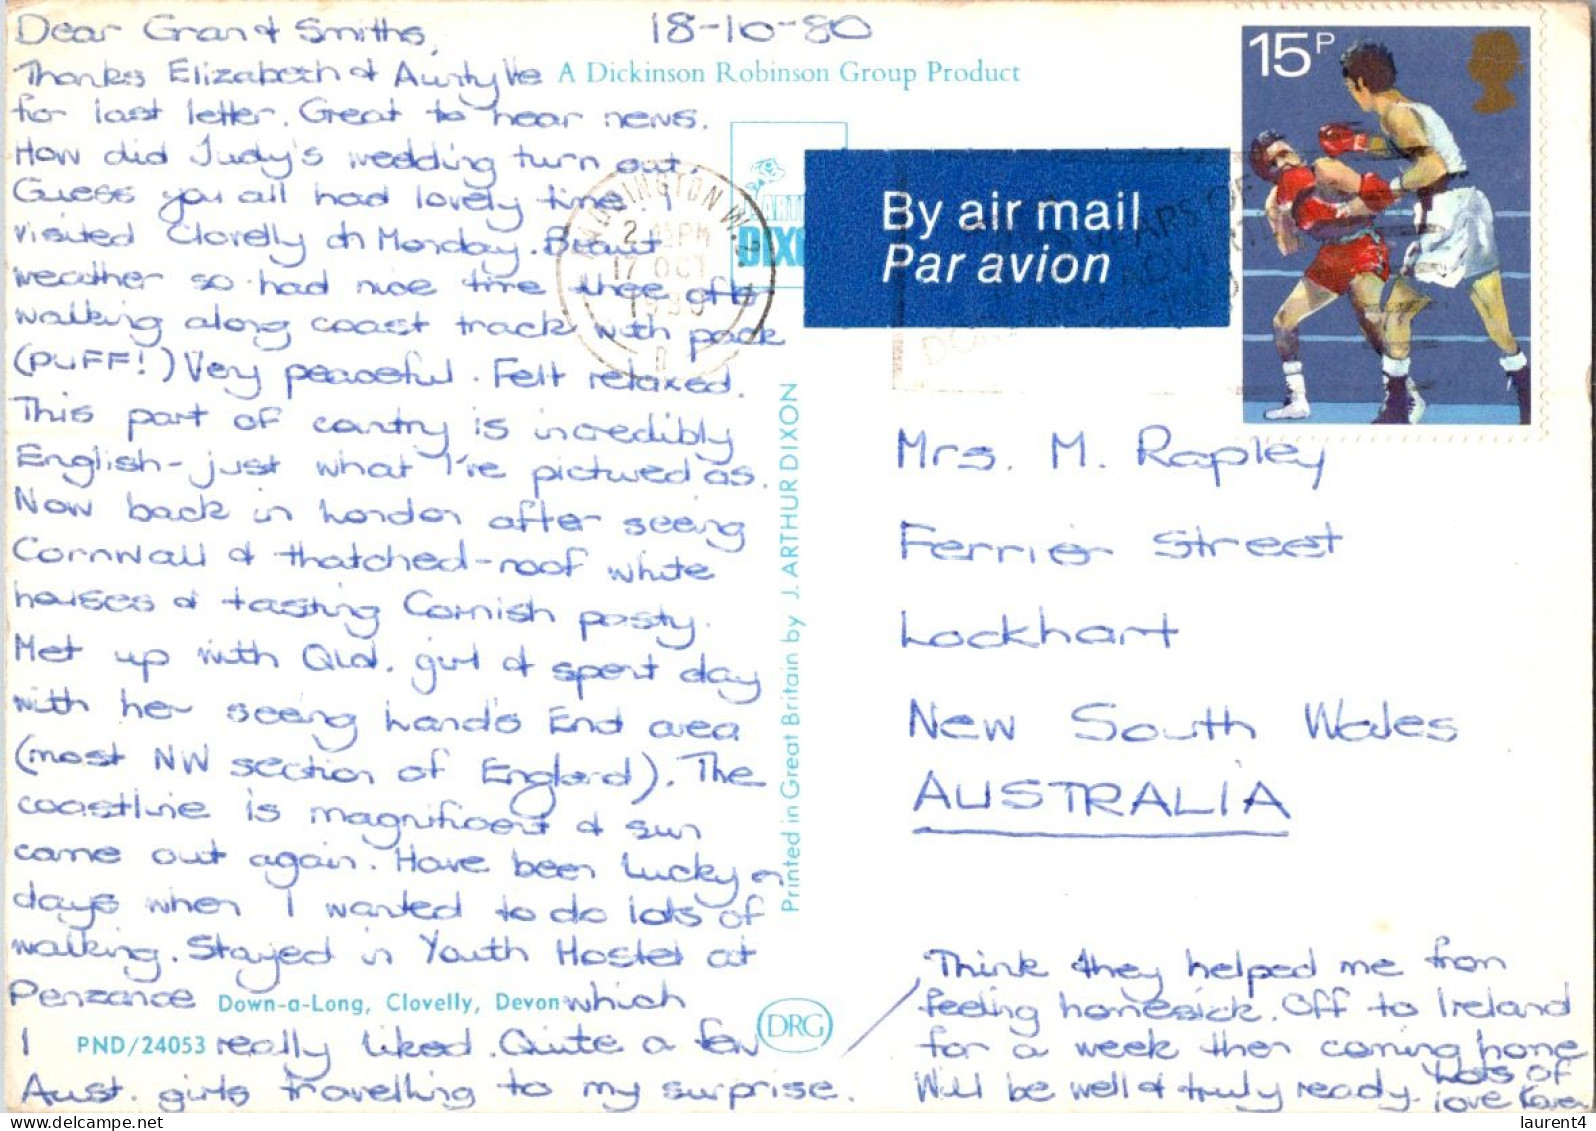 Dear Gran & Smiths,
18-10-80
Thanks Elizabeth & Aunty Ve
for last letter. Great to hear news.
How did Judy's wedding turn out.
Guess you all had lovely time. I
visited Clovelly on Monday. Beaut
weather so had nice time there after
walking along coast track with pack
(PUFF!) Very peaceful. Felt relaxed.
This part of country is incredibly
English-just what I've pictured as.
Now back in London after seeing
Cornwall & thatched-roof white
houses & tasting Cornish pasty.
Met up with Qld. girl & spent day
with her seeing Land's End area
(most NW section of England). The
coastline is magnificent & sun
came out again. Have been lucky on
days when I wanted to do lots of
walking. Stayed in Youth Hostel at
Penzance which
I really liked. Quite a few
Aust. girls travelling to my surprise.
Think they helped me from
feeling homesick. Off to Ireland
for a week then coming home
Will be well & truly ready. Lots of
love Karen
A Dickinson Robinson Group Product
DIXON
PADDINGTON W.2
2 45PM
17 OCT
1980
By air mail
Par avion
15P
Printed in Great Britain by J. ARTHUR DIXON
Mrs. M. Rapley
Ferrier Street
Lockhart
New South Wales
AUSTRALIA
Down-a-Long, Clovelly, Devon
PND/24053
DRG
laurent4